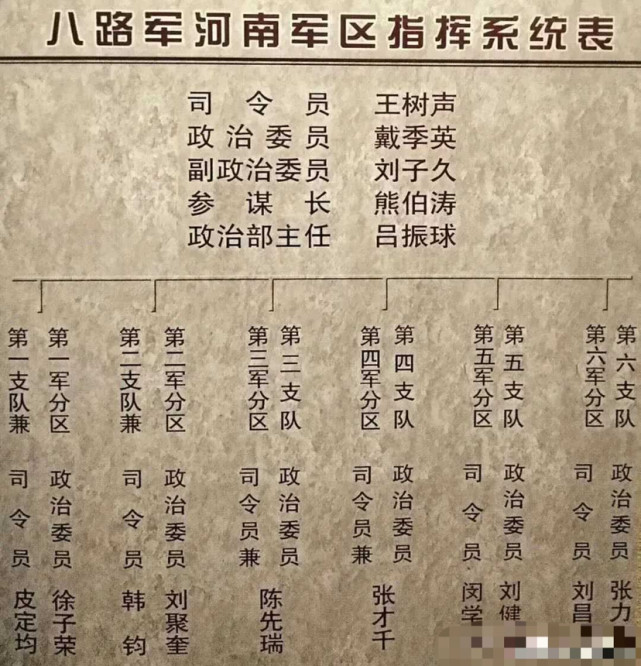 八路军河南军区指挥系统表
司令员 王树声
政治委员 戴季英
副政治委员 刘子久
参谋长 熊伯涛
政治部主任 吕振球
第一支队兼
第一军分区
司令员 皮定均
政治委员 徐子荣
第二支队兼
第二军分区
司令员 韩钧
政治委员 刘聚奎
第三军分区
第三支队
司令员兼
政治委员
陈先瑞
第四军分区
第四支队
司令员兼
政治委员
张才千
第五军分区
第五支队
司令员 闵学
政治委员 刘健
第六军分区
第六支队
司令员 刘昌
政治委员 张力